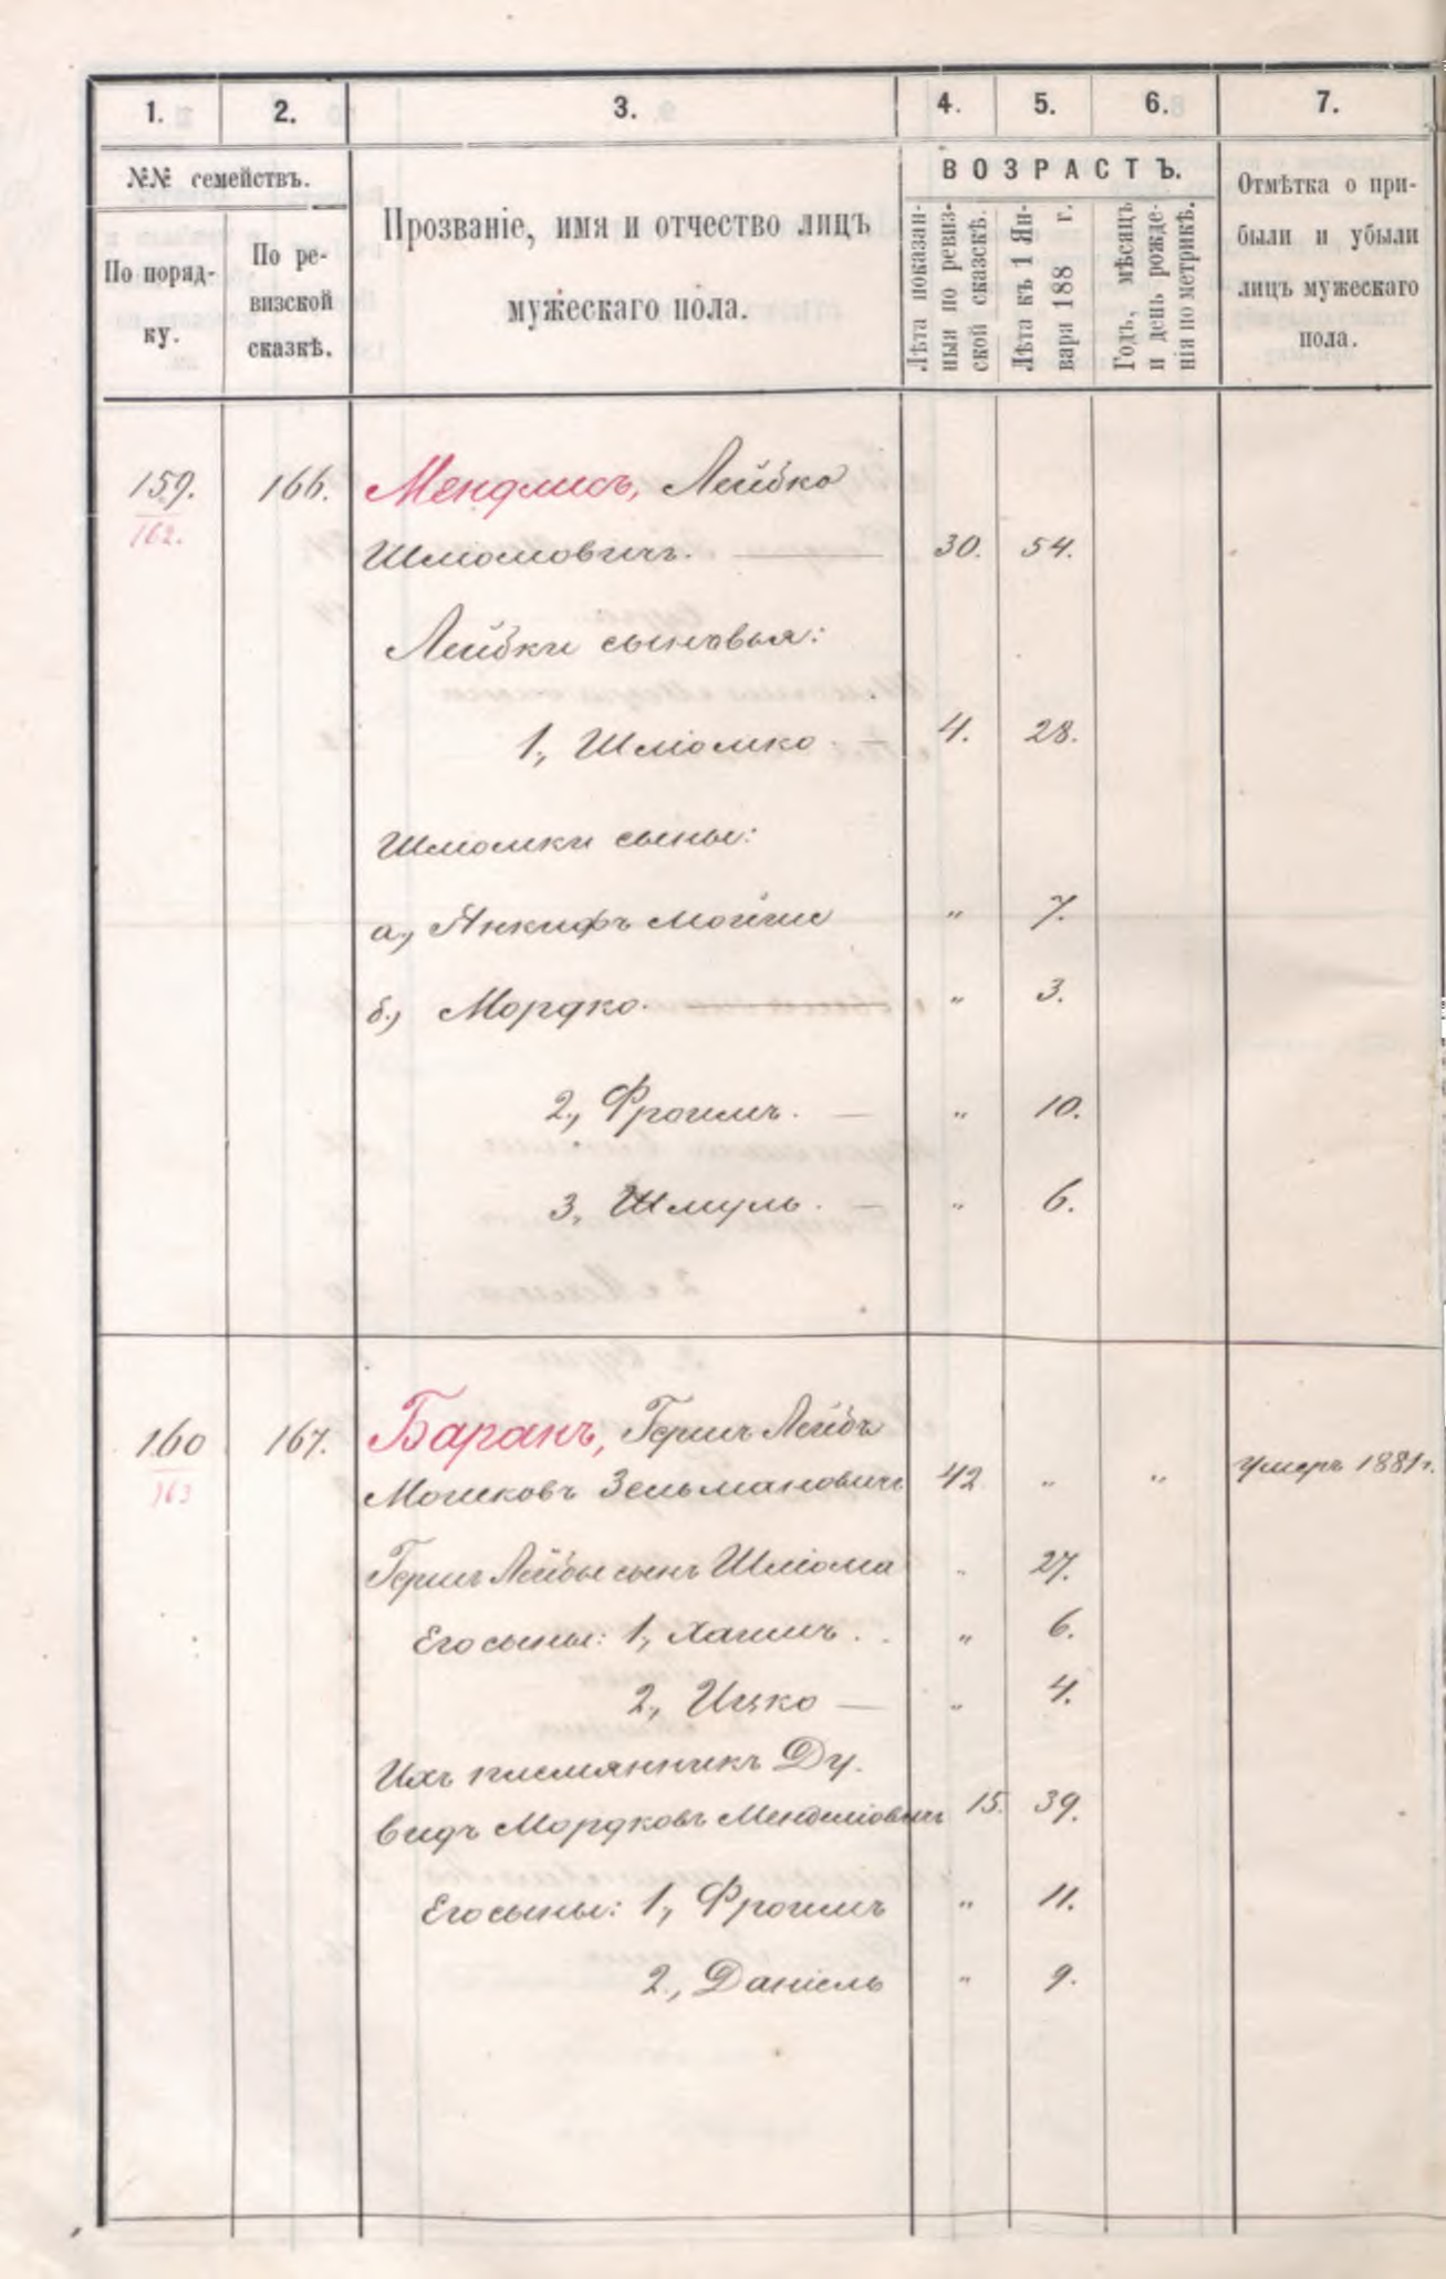 1. 2. 3. 4. 5. 6. 7.
№№ семействъ.
По поряд-
ку.
По ре-
визской
сказкѣ.
Прозваніе, имя и отчество лицъ
мужескаго пола.
ВОЗРАСТЪ.
Лѣта показан-
ныя по ревиз-
ской сказкѣ.
Лѣта къ 1 Ян-
варя 188 г.
Годъ, мѣсяцъ
и день рожде-
нія по метрикѣ.
Отмѣтка о при-
были и убыли
лицъ мужескаго
пола.
159. 166. Мендлисъ, Лейбко
162.
Шліомовичъ. 30. 54.
Лейбки сыновья:
1, Шліомко. 4. 28.
Шліомки сыны:
а, Янкифъ Мойше " 7.
б, Мордко. " 3.
2, Фроимъ. " 10.
3, Шмуль. " 6.
160 167. Баранъ, Гершъ Лейбъ
163
Мошковъ Зельмановичъ 42 " " Умеръ 1881 г.
Гершъ Лейбы сынъ Шліома " 27.
Его сыны: 1, Хаимъ . . " 6.
2, Ицко " 4.
Ихъ племянникъ Ду-
видъ Мордковъ Менделіовичъ 15. 39.
Его сыны: 1, Фроимъ " 11.
2, Даніель " 9.